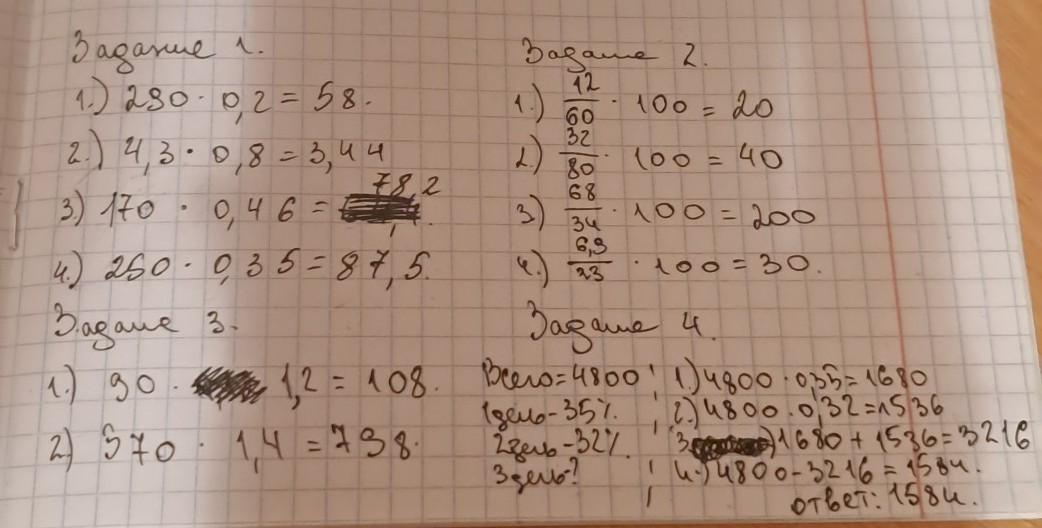 Задание 1.
1.) 290 · 0,2 = 58.
2.) 4,3 · 0,8 = 3,44
3.) 170 · 0,46 = 78,2
4.) 250 · 0,35 = 87,5.
Задание 2.
1.) 12/60 · 100 = 20
2) 32/80 · 100 = 40
3) 68/34 · 100 = 200
4.) 6,9/23 · 100 = 30.
Задание 3.
1.) 90 · 1,2 = 108.
2) 570 · 1,4 = 798.
Задание 4.
Всего = 4800
1 день - 35%.
2 день - 32%.
3 день - ?
1.) 4800 · 0,35 = 1680
2.) 4800 · 0,32 = 1536
3) 1680 + 1536 = 3216
4.) 4800 - 3216 = 1584.
ответ: 1584.